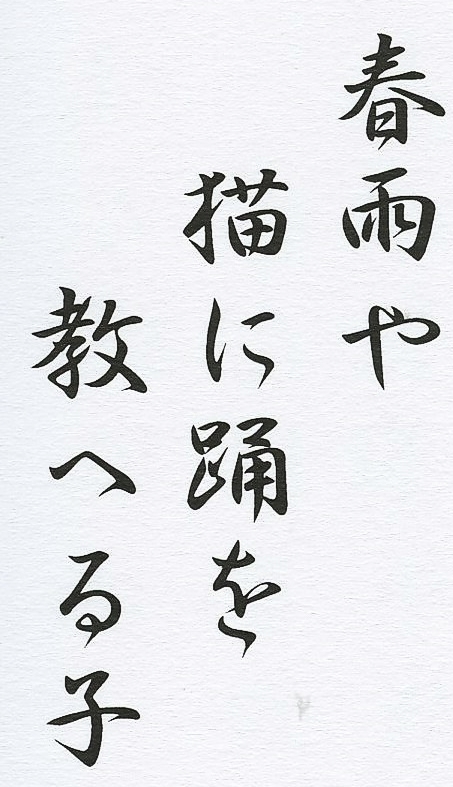 春雨や
猫に踊を
教へる子